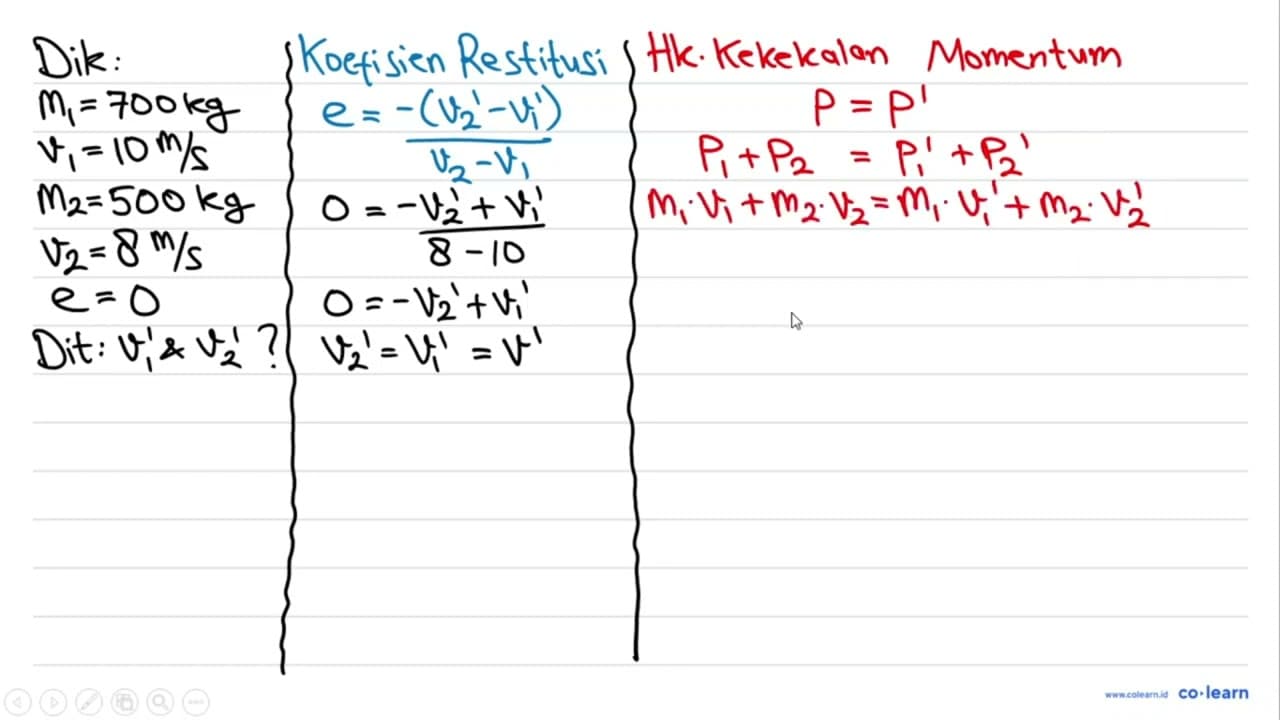 Dik:
m₁ = 700 kg
v₁ = 10 m/s
m₂ = 500 kg
v₂ = 8 m/s
e = 0
Dit: v₁' & v₂' ?
Koefisien Restitusi
e = -(v₂' - v₁')
v₂ - v₁
0 = -v₂' + v₁'
8 - 10
0 = -v₂' + v₁'
v₂' = v₁' = v'
Hk. Kekekalan Momentum
P = P'
P₁ + P₂ = P₁' + P₂'
m₁·v₁ + m₂·v₂ = m₁·v₁' + m₂·v₂'
www.colearn.id co·learn